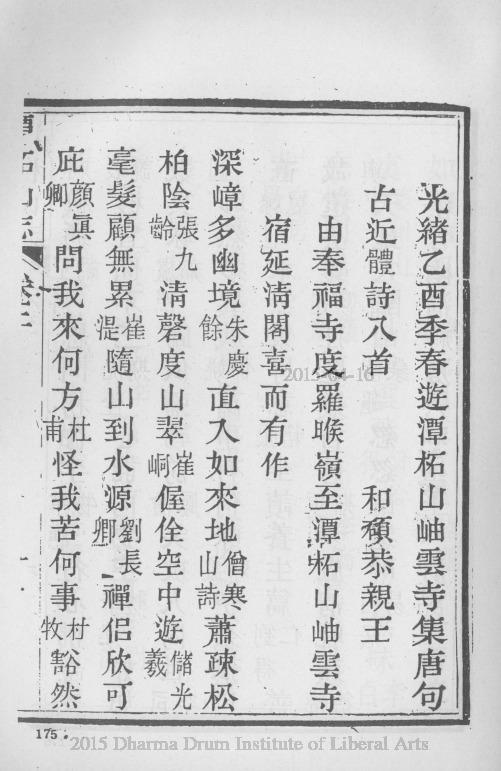 光緒乙酉季春遊潭柘山岫雲寺集唐句
古近體詩八首　和碩恭親王
由奉福寺度羅睺嶺至潭柘山岫雲寺
宿延淸閣喜而有作
深嶂多幽境朱慶餘直入如來地僧寒山詩蕭疎松
柏陰張九齡淸磬度山翠崔峒偓佺空中遊儲光羲
毫髮顧無累崔湜隨山到水源劉長卿禪侶欣可
庇顏眞卿問我來何方杜甫怪我苦何事杜牧豁然
潭柘山志
卷二
175
2015-04-16
2015 Dharma Drum Institute of Liberal Arts